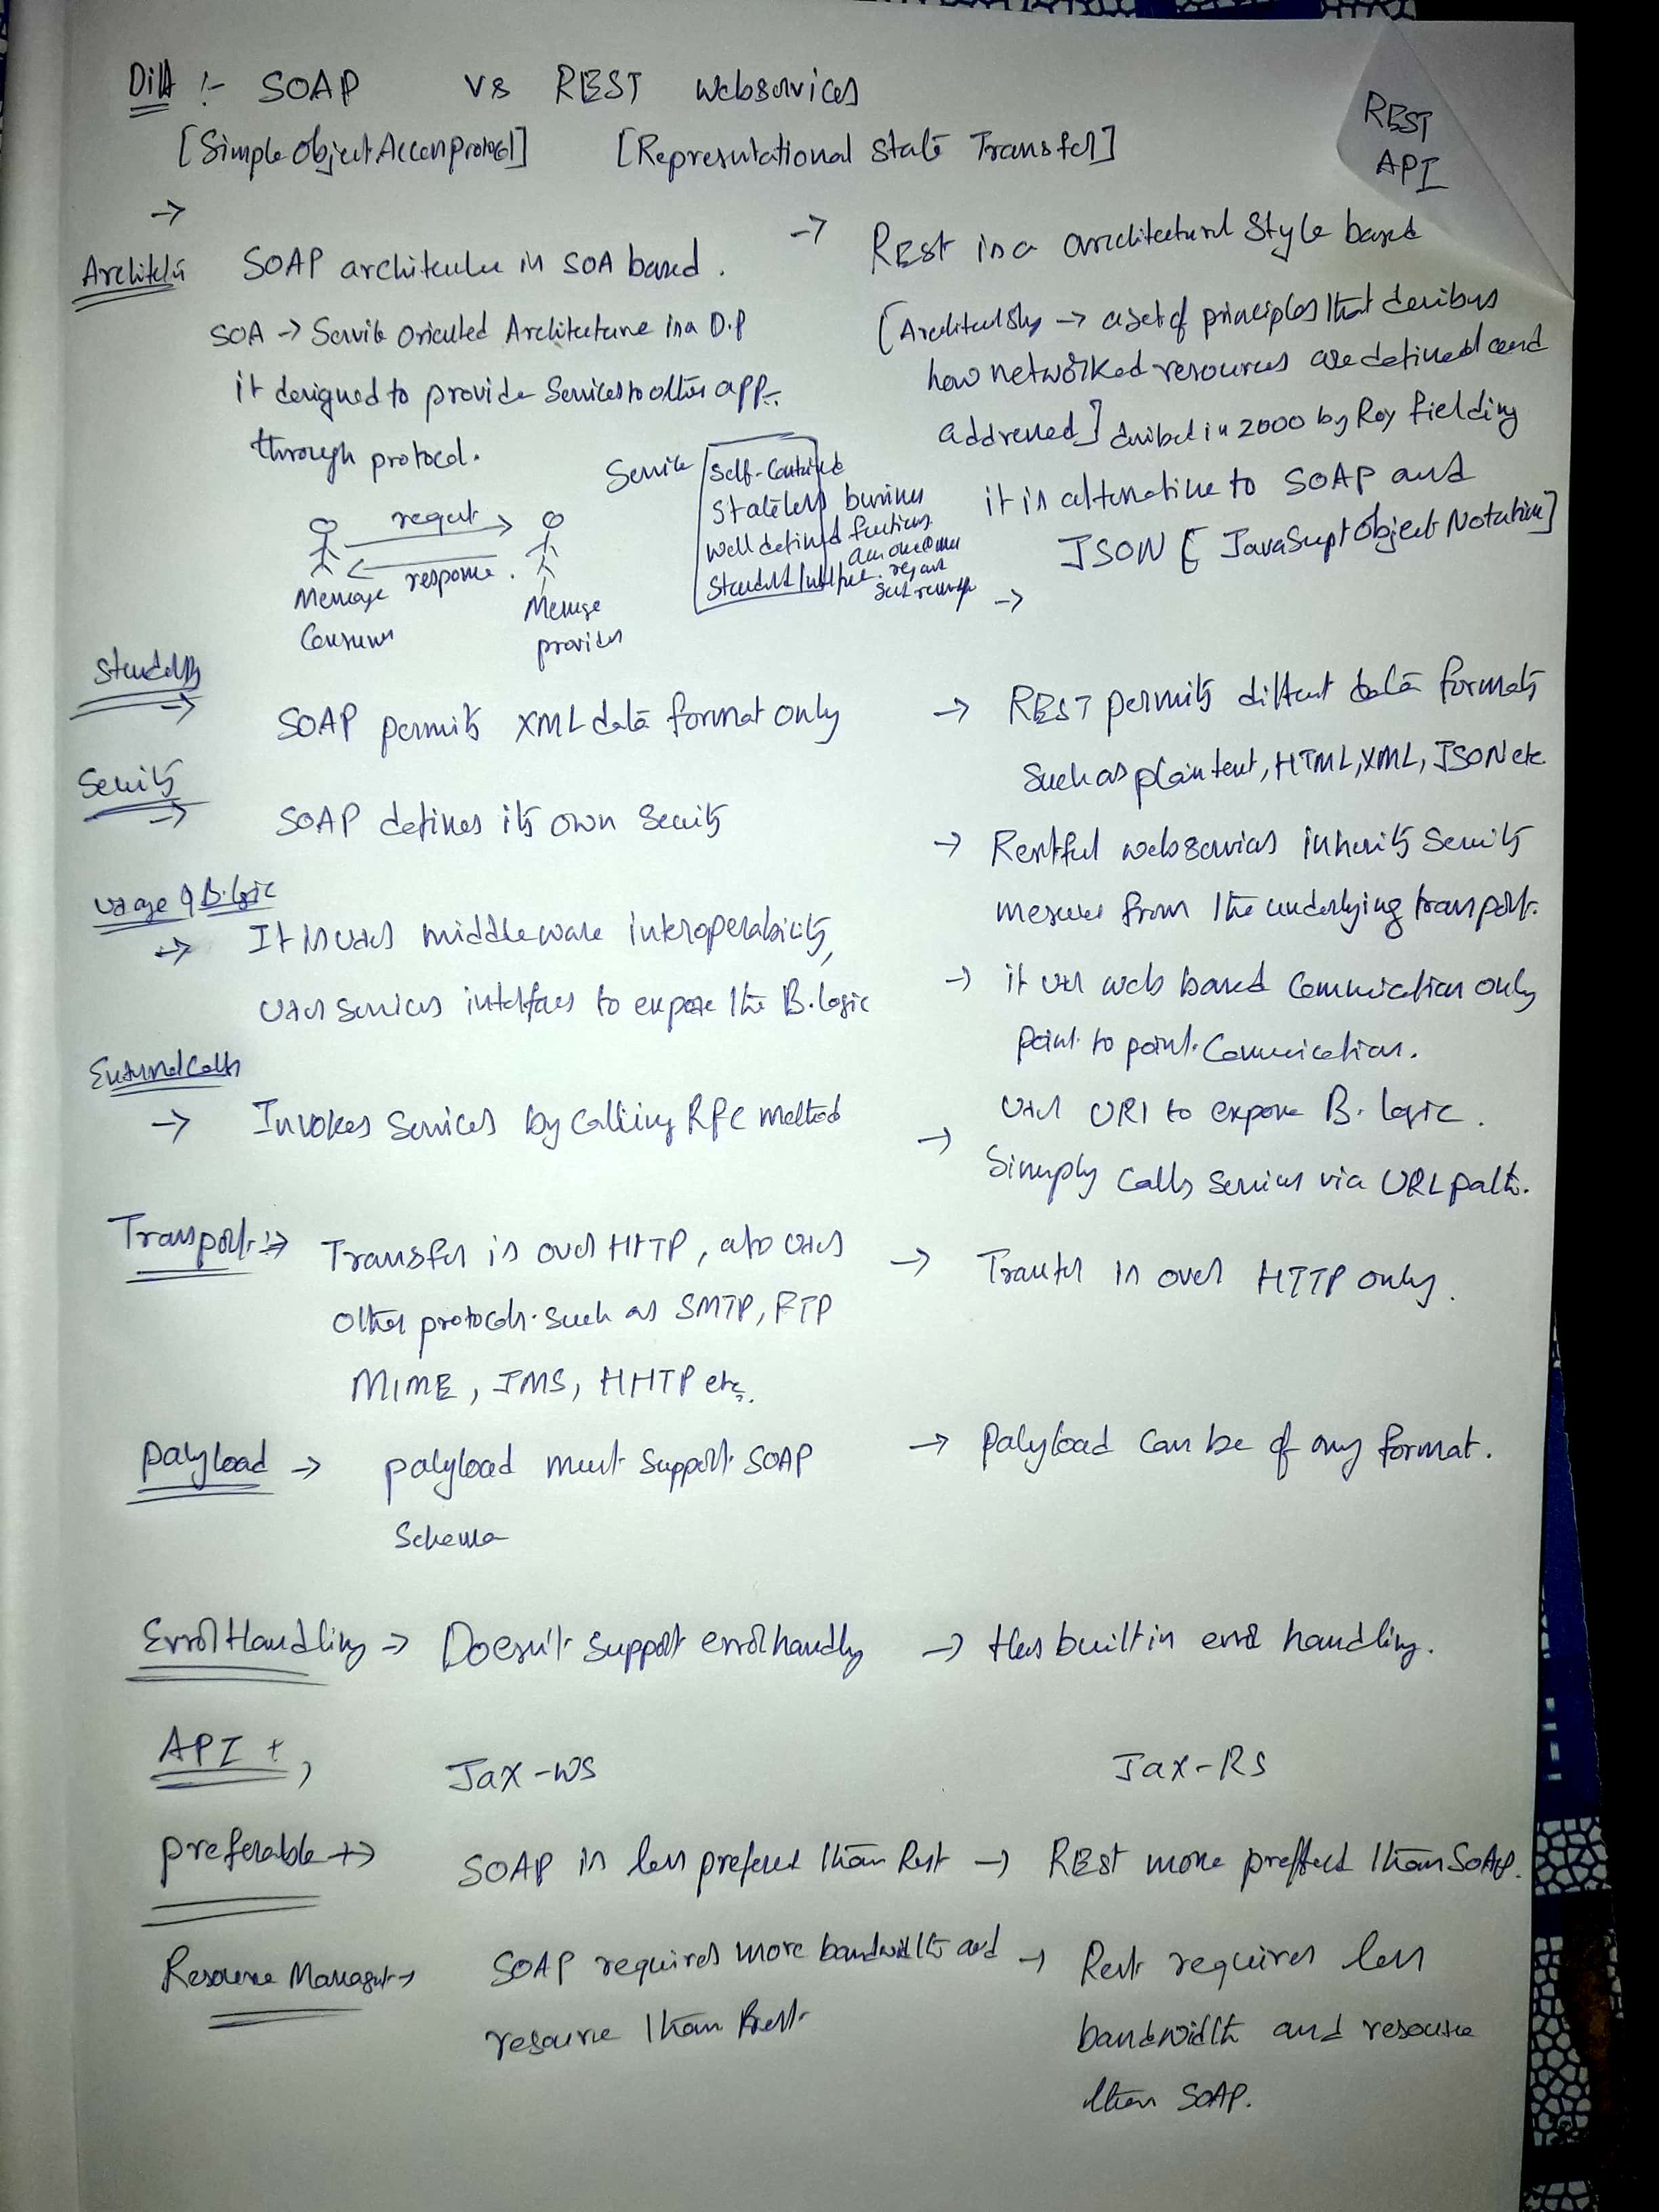 Diff :- SOAP vs REST Webservices
[Simple Object Access protocol] [Representational State Transfer]
REST
API
→
Architetu
SOAP architecture is SOA based.
SOA → Service Oriented Architecture is a D.P
it designed to provide Services to other app.
through protocol.
request
response.
Message
Consumer
Message
provider
Service
Self-Contained
Stateless business
Well defined functions
Standard
→ REST is a architectural Style based
[Architectural Style → a set of principles that describes
how networked resources are defined and
addressed] described in 2000 by Roy Fielding
it is alternative to SOAP and
JSON [JavaScript Object Notation]
→
Standards
→ SOAP permits XML data format only
→ REST permits different data formats
Such as plain text, HTML, XML, JSON etc
Security
→ SOAP defines its own Security
→ Restful webservices inherits Security
measures from the underlying transport.
Usage & B.logic
→ It is uses middleware interoperability,
uses services interfaces to expose the B.logic
→ it use web based Communication only
point to point Communication.
uses URI to expose B. logic.
External Calls
→ Invokes Services by Calling RPC method
→ Simply Calls Services via URL path.
Transport :→ Transfer is over HTTP, also uses
other protocols such as SMTP, FTP
MIME, JMS, HHTP etc.
→ Transfer is over HTTP only.
palyload → palyload must Support SOAP
Schema
→ palyload Can be of any format.
Error Handling → Doesn't Support error handling
→ Has built in error handling.
API +, Jax-WS Jax-RS
preferable +→ SOAP is less prefered than Rest → REST more preffered than SOAP.
Resource Managment → SOAP requires more bandwidth and
resource than Rest
→ Rest requires less
bandwidth and resource
than SOAP.